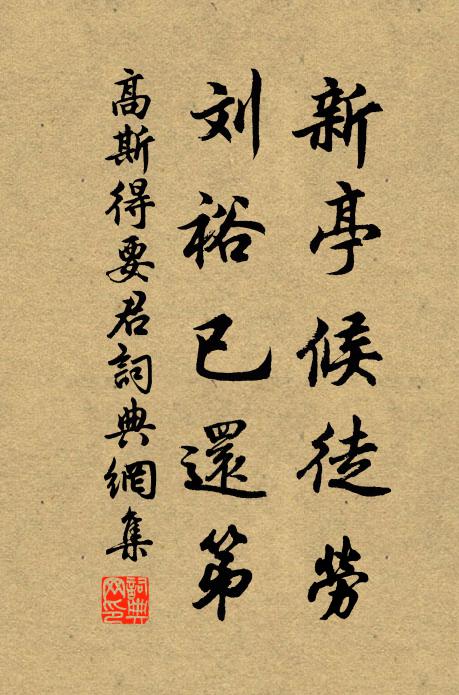 新亭候徒勞
刘裕已還第
高斯得要君詞典網集
詞典网印